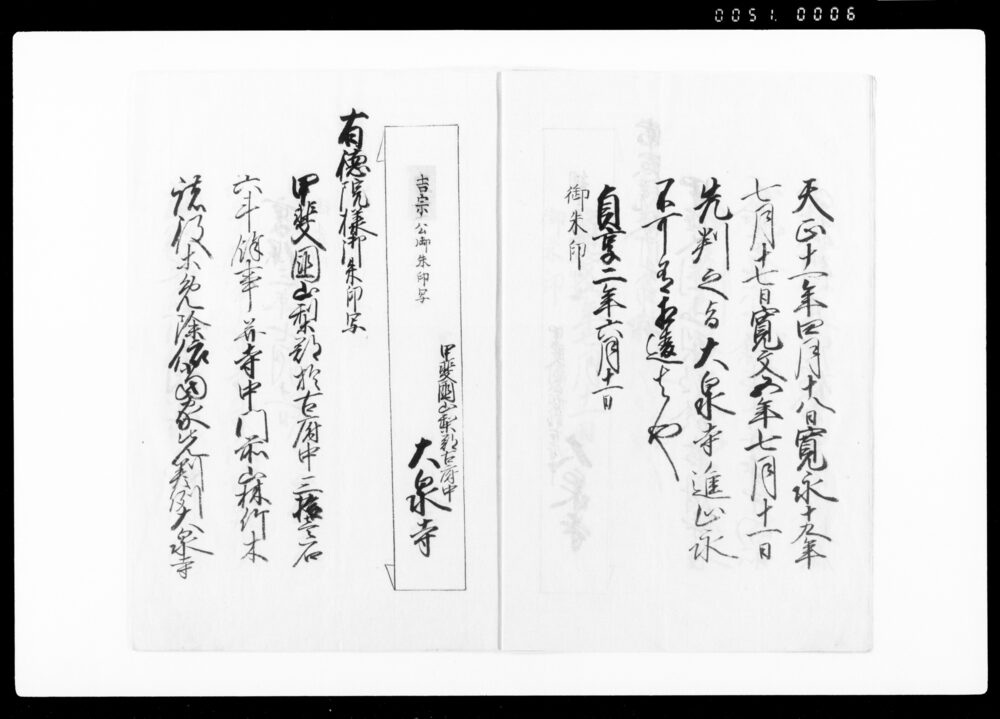 0051. 0006
天正十一年四月十八日寛永十九年
七月十七日寛文五年七月十一日
先判之旨大泉寺進止永
不可有相違者也
貞享二年六月十一日
御朱印
甲斐国山梨郡古府中
大泉寺
吉宗公御朱印写
有徳院様御朱印写
甲斐国山梨郡於古府中三拾壱石
六斗餘事并寺中門前山林竹木
諸役等免除依当家先判例大泉寺